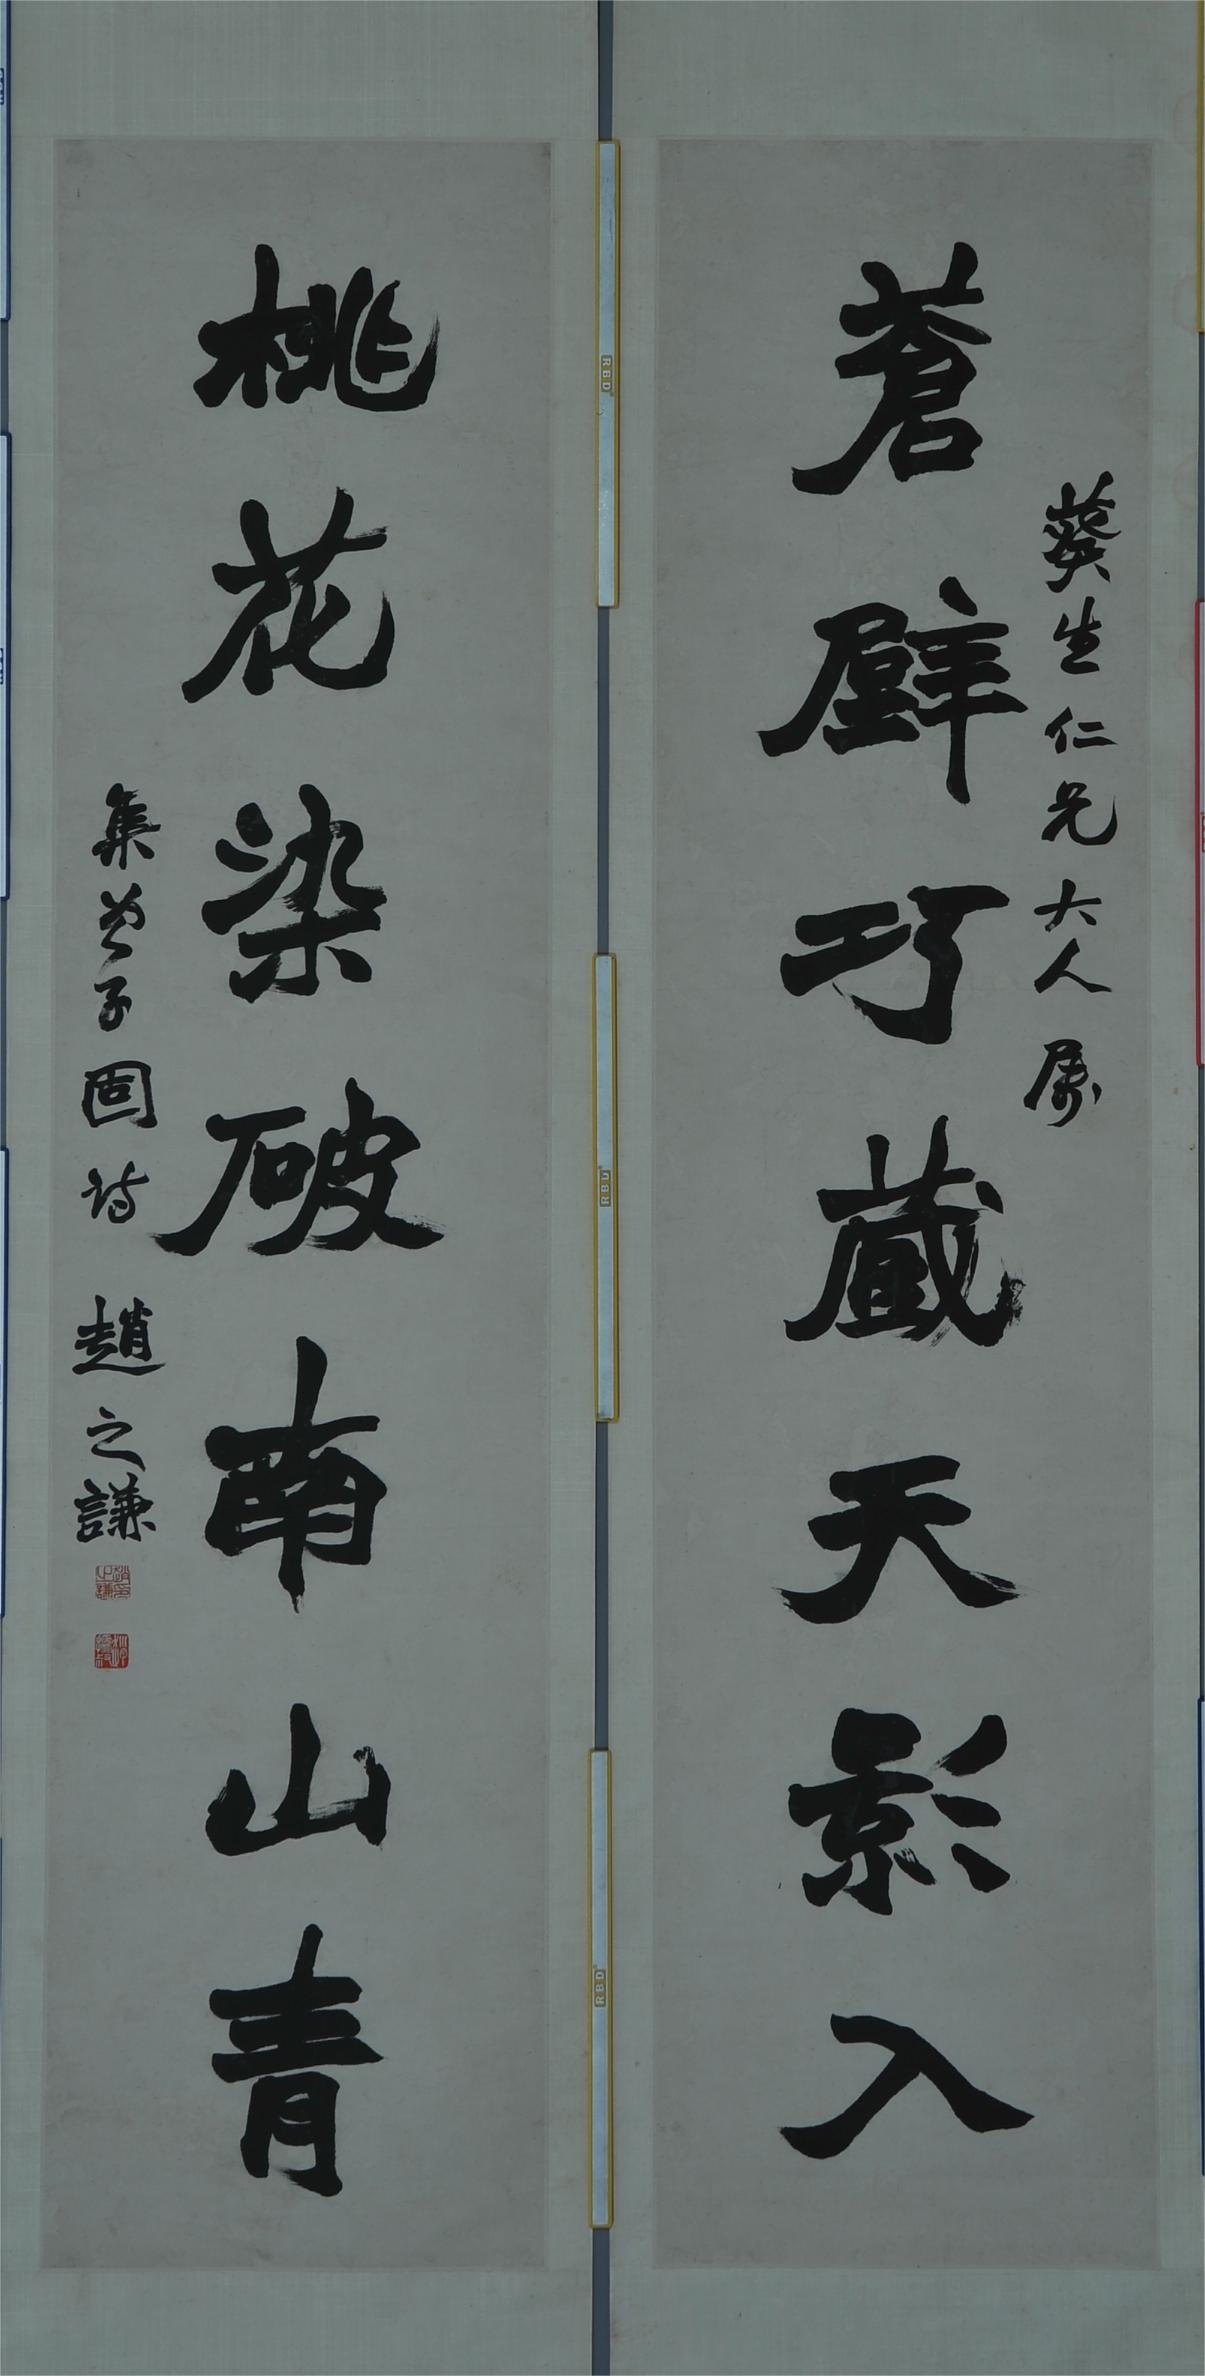 蒼壁巧藏天影入
葵生仁兄大人屬
桃花染破南山青
集曾子固詩 趙之謙
RBD
RBD
RBD